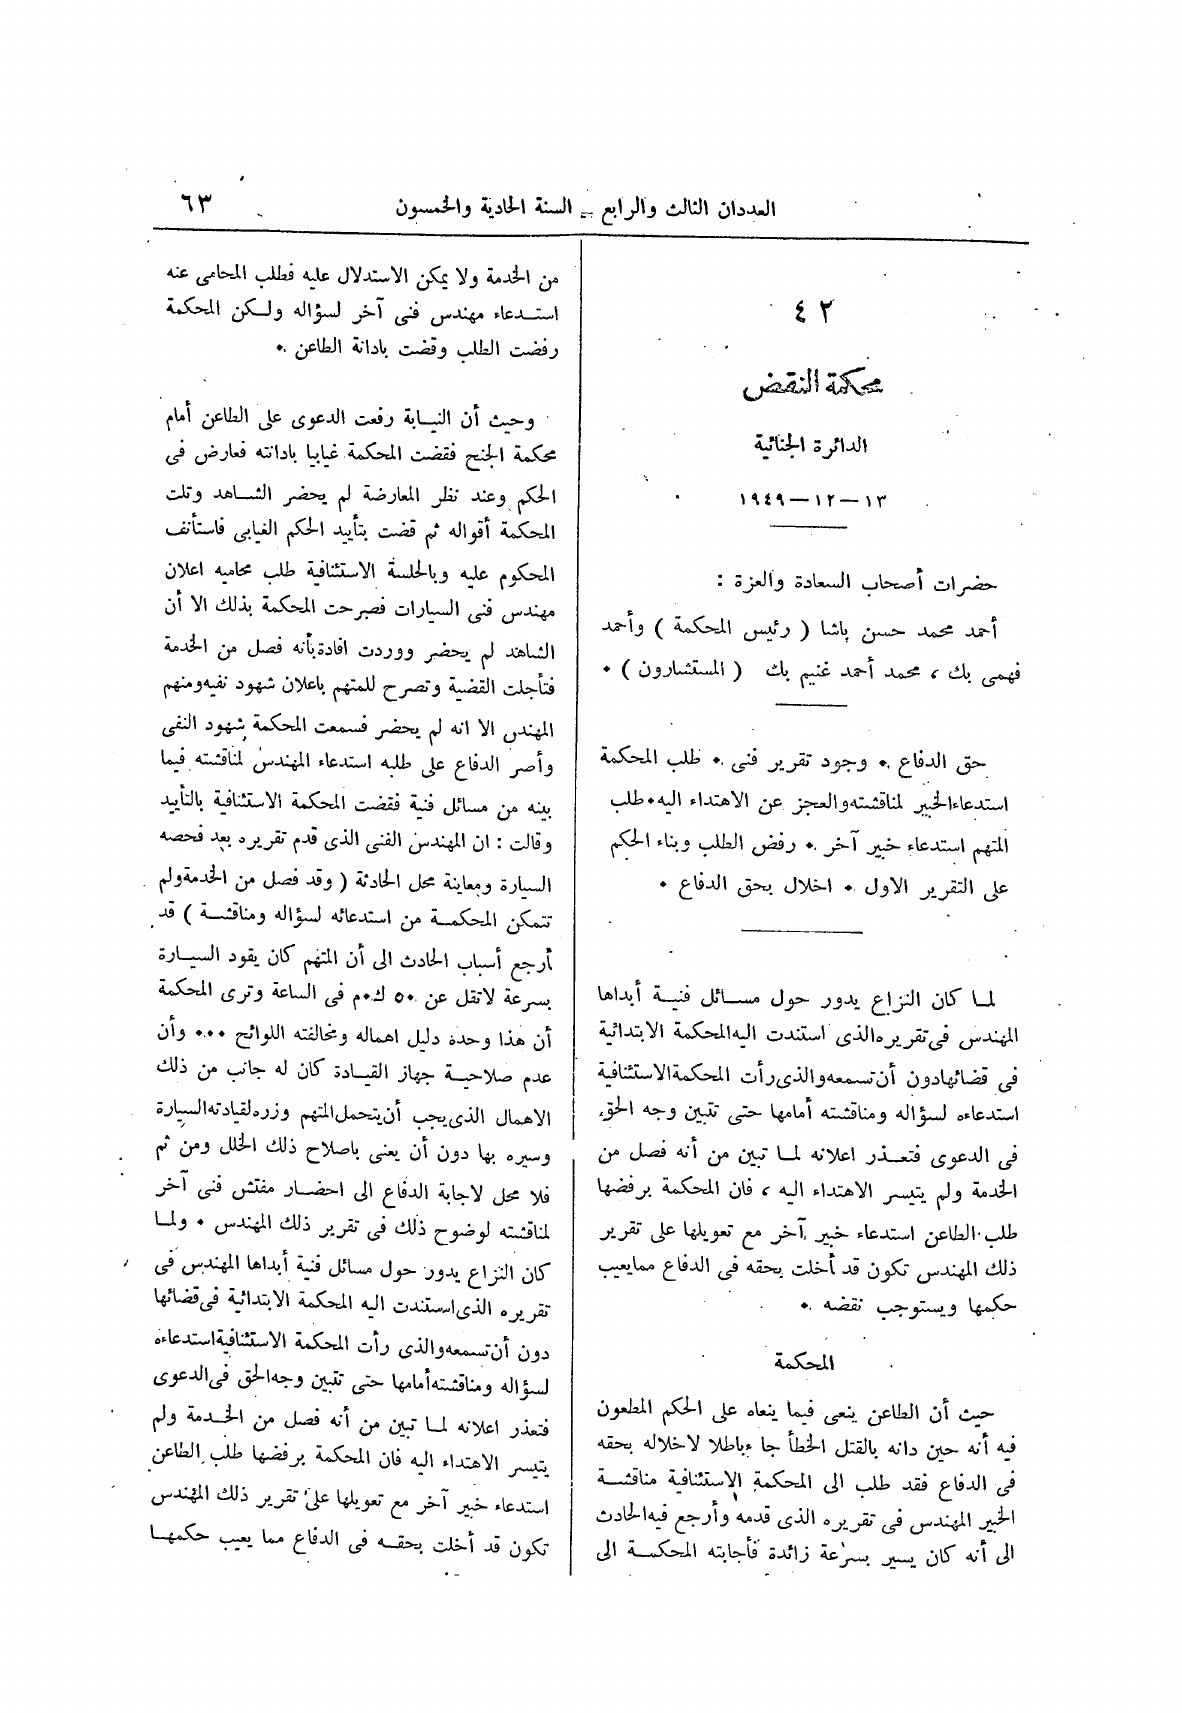 العددان الثالث والرابع – السنة الحادية والخمسون
٦٣
٤٢
محكمة النقض
الدائرة الجنائية
١٣ – ١٢ – ١٩٤٩
حضرات أصحاب السعادة والعزة :
أحمد محمد حسن باشا ( رئيس المحكمة ) وأحمد
فهمى بك ، محمد أحمد غنيم بك ( المستشارون ) ٠
حق الدفاع ٠ وجود تقرير فنى ٠ طلب المحكمة
استدعاء الخبير لمناقشته والعجز عن الاهتداء اليه ٠ طلب
المتهم استدعاء خبير آخر ٠ رفض الطلب وبناء الحكم
على التقرير الاول ٠ اخلال بحق الدفاع ٠
لما كان النزاع يدور حول مسائل فنية أبداها
المهندس فى تقريره الذى استندت اليه المحكمة الابتدائية
فى قضائها دون أن تسمعه والذى رأت المحكمة الاستئنافية
استدعاءه لسؤاله ومناقشته أمامها حتى تتبين وجه الحق
فى الدعوى فتعذر اعلانه لما تبين من أنه فصل من
الخدمة ولم يتيسر الاهتداء اليه ، فان المحكمة برفضها
طلب الطاعن استدعاء خبير آخر مع تعويلها على تقرير
ذلك المهندس تكون قد أخلت بحقه فى الدفاع مما يعيب
حكمها ويستوجب نقضه ٠
المحكمة
حيث أن الطاعن ينعى فيما ينعاه على الحكم المطعون
فيه أنه حين دانه بالقتل الخطأ جاء باطلا لاخلاله بحقه
فى الدفاع فقد طلب الى المحكمة الاستئنافية مناقشة
الخبير المهندس فى تقريره الذى قدمه وأرجع فيه الحادث
الى أنه كان يسير بسرعة زائدة فأجابته المحكمة الى
من الخدمة ولا يمكن الاستدلال عليه فطلب المحامى عنه
استدعاء مهندس فنى آخر لسؤاله ولكن المحكمة
رفضت الطلب وقضت بادانة الطاعن ٠
وحيث أن النيابة رفعت الدعوى على الطاعن أمام
محكمة الجنح فقضت المحكمة غيابيا بادانته فعارض فى
الحكم وعند نظر المعارضة لم يحضر الشاهد وتلت
المحكمة أقواله ثم قضت بتأييد الحكم الغيابى فاستأنف
المحكوم عليه وبالجلسة الاستئنافية طلب محاميه اعلان
مهندس فنى السيارات فصرحت المحكمة بذلك الا أن
الشاهد لم يحضر ووردت افادة بأنه فصل من الخدمة
فتأجلت القضية وتصرح للمتهم باعلان شهود نفيه ومنهم
المهندس الا انه لم يحضر فسمعت المحكمة شهود النفى
وأصر الدفاع على طلبه استدعاء المهندس لمناقشته فيما
بينه من مسائل فنية فقضت المحكمة الاستئنافية بالتأييد
وقالت : ان المهندس الفنى الذى قدم تقريره بعد فحصه
السيارة ومعاينة محل الحادثة ( وقد فصل من الخدمة ولم
تتمكن المحكمة من استدعائه لسؤاله ومناقشة ) قد
أرجع أسباب الحادث الى أن المتهم كان يقود السيارة
بسرعة لا تقل عن ٥٠ ك٠م فى الساعة وترى المحكمة
أن هذا وحده دليل اهماله ومخالفته اللوائح ٠٠٠ وأن
عدم صلاحية جهاز القيادة كان له جانب من ذلك
الاهمال الذى يجب أن يتحمل المتهم وزره لقيادته السيارة
وسيره بها دون أن يعنى باصلاح ذلك الخلل ومن ثم
فلا محل لاجابة الدفاع الى احضار مفتش فنى آخر
لمناقشته لوضوح ذلك فى تقرير ذلك المهندس ٠ ولما
كان النزاع يدور حول مسائل فنية أبداها المهندس فى
تقريره الذى استندت اليه المحكمة الابتدائية فى قضائها
دون أن تسمعه والذى رأت المحكمة الاستئنافية استدعاءه
لسؤاله ومناقشته أمامها حتى تتبين وجه الحق فى الدعوى
فتعذر اعلانه لما تبين من أنه فصل من الخدمة ولم
يتيسر الاهتداء اليه فان المحكمة برفضها طلب الطاعن
استدعاء خبير آخر مع تعويلها على تقرير ذلك المهندس
تكون قد أخلت بحقه فى الدفاع مما يعيب حكمها